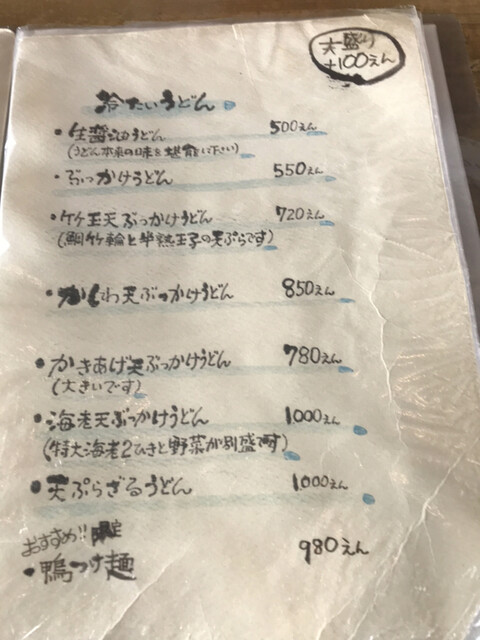 大盛り
+100えん
冷たいうどん
・生醤油うどん 500えん
(うどん本来の味を堪能下さい)
・ぶっかけうどん 550えん
・竹玉天ぶっかけうどん 720えん
(鯛竹輪と半熟玉子の天ぷらです)
・かしわ天ぶっかけうどん 850えん
・かきあげ天ぶっかけうどん 780えん
(大きいです)
・海老天ぶっかけうどん 1000えん
(特大海老2ひきと野菜が別盛です)
・天ぷらざるうどん 1000えん
おすすめ!! 限定
・鴨つけ麺 980えん